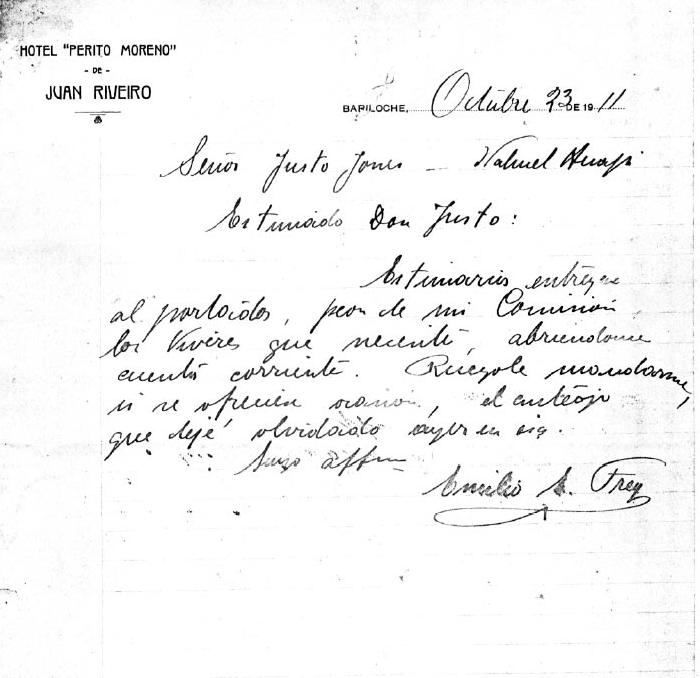 HOTEL "PERITO MORENO"
- DE -
JUAN RIVEIRO
BARILOCHE, Octubre 23 DE 1911
Señor Justo Jones - Nahuel Huapi
Estimado Don Justo:
Estimaria entregue
al portador, peon de mi Comision,
los viveres que necesite, abriendome
cuenta corriente. Ruegole mandarme,
si se ofreciera ocasion, el anteojo
que dejé olvidado ayer en
Suyo affmo
Emilio E. Frey